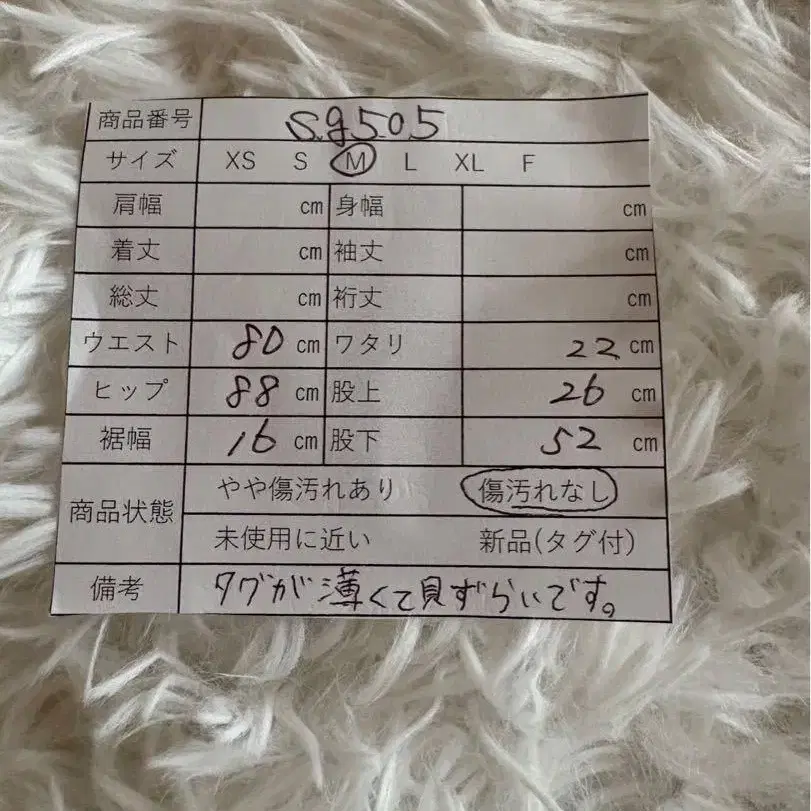 商品番号 sg505
サイズ XS S M L XL F
肩幅 cm 身幅 cm
着丈 cm 袖丈 cm
総丈 cm 裄丈 cm
ウエスト 80 cm ワタリ 22 cm
ヒップ 88 cm 股上 26 cm
裾幅 16 cm 股下 52 cm
商品状態 やや傷汚れあり 傷汚れなし
未使用に近い 新品(タグ付)
備考 タグが薄くて見ずらいです。